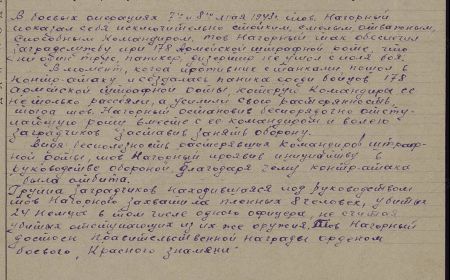 В боевых операциях 7го и 8го мая 1943г тов. Нагорный
показал себя исключительно стойким, смелым отважным,
способным командиром. Тов Нагорный так обеспечил
заградслужбу при 178 Армейской штрафной роте, что
ни один трус, паникер, дизертир не ушел с поля боя.
В момент, когда противник пошел в
контр-атаку и создалась паника среди бойцов 178
армейской штрафной роты, которую командиры ее
не только рассеяли, а усилили свою растерянность,
тогда тов. Нагорный остановил беспорядочно отсту-
пающую роту вместе с ее командиром и волею
заградчиков заставил занять оборону.
Видя бесполезность растерявших командиров штраф-
ной роты, тов Нагорный проявив инициативу в
руководстве обороной, благодаря чему контр-атака
была отбита.
Группа заградчиков находившаяся под руководством
тов Нагорного захватила пленных 8 человек, убитых
24 немца в том числе одного офицера, не считая
убитых отступающих из их же оружия. Тов Нагорный
достоен правительственной награды орденом
боевого „Красного знамени"